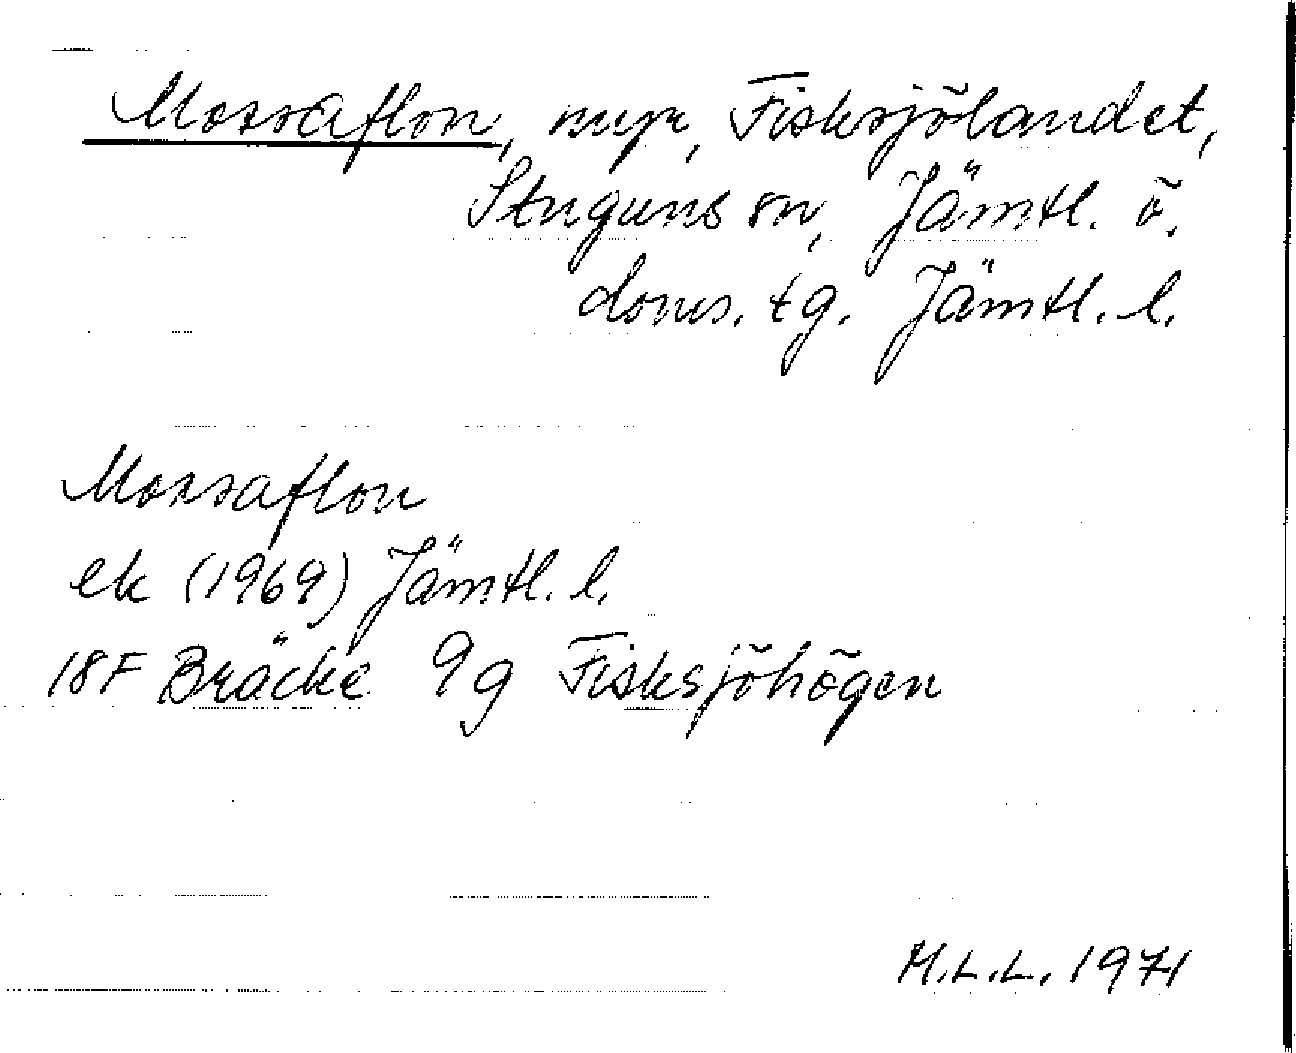 Mossaflon, myr, Fisksjölandet,
Stuguns sn, Jämtl. ö.
doms. tg. Jämtl. l.
Mossaflon
ek (1969) Jämtl. l.
18F Bräcke 9g Fisksjöhögen
M.L.L. 1971